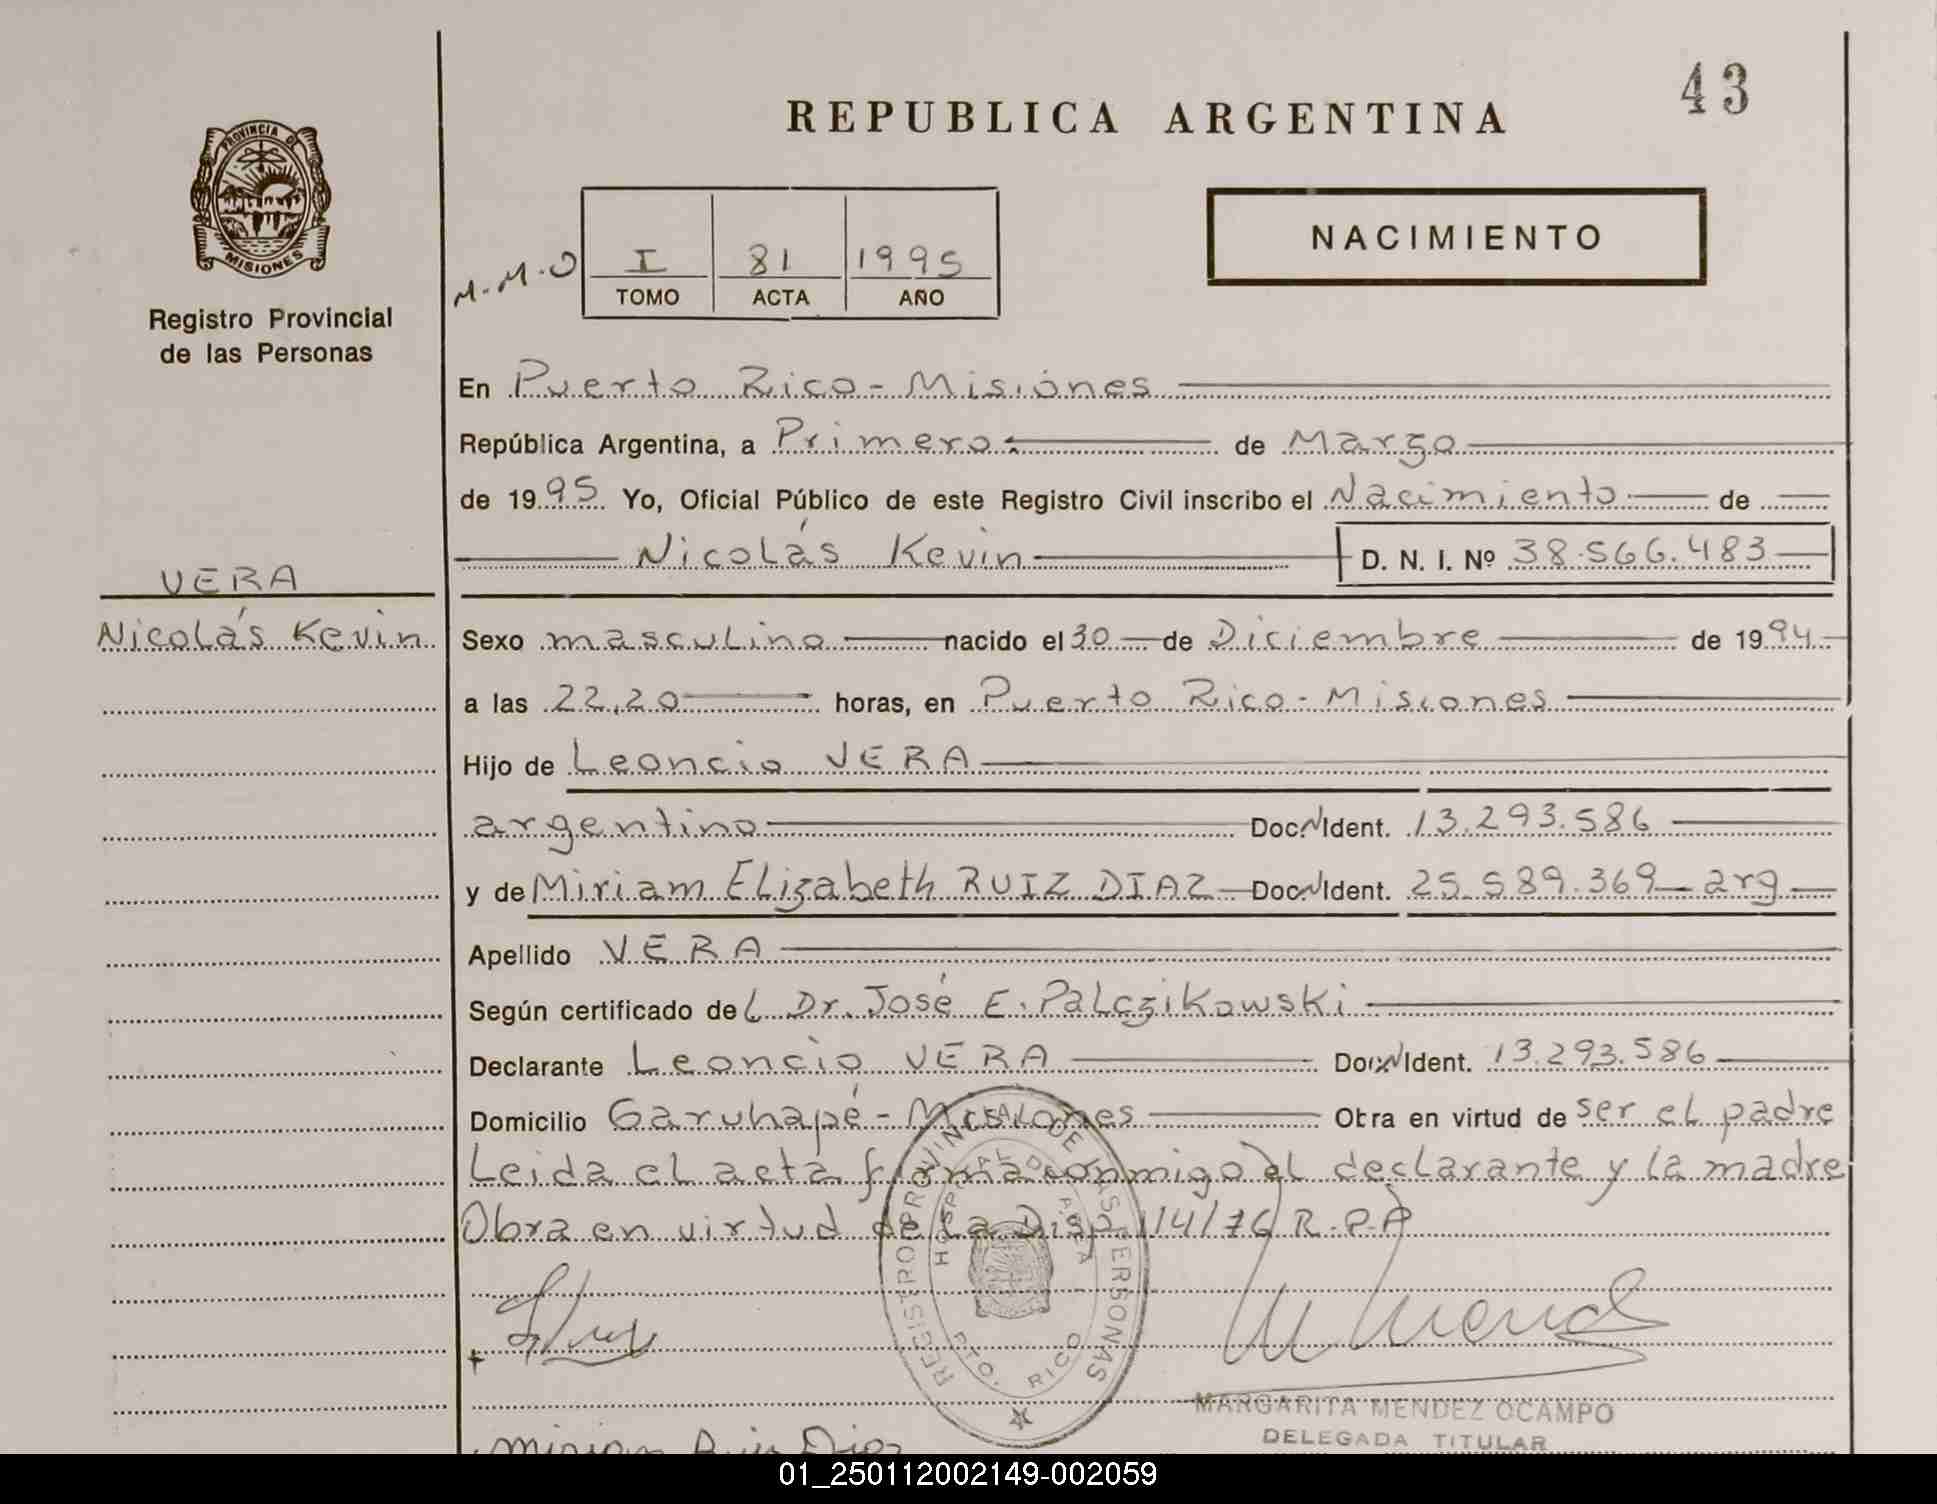 43
REPUBLICA ARGENTINA
PROVINCIA DE
MISIONES
Registro Provincial
de las Personas
NACIMIENTO
M.M.O
I 81 1995
TOMO ACTA AÑO
En Puerto Rico - Misiones
República Argentina, a Primero de Marzo
de 1995 Yo, Oficial Público de este Registro Civil inscribo el Nacimiento de
Nicolás Kevin D. N. I. Nº 38.566.483
VERA
Nicolás Kevin
Sexo masculino nacido el 30 de Diciembre de 1994
a las 22,20 horas, en Puerto Rico - Misiones
Hijo de Leoncio VERA
argentino Doc. N Ident. 13.293.586
y de Miriam Elizabeth RUIZ DIAZ Doc. N Ident. 25.589.369 arg
Apellido VERA
Según certificado del Dr. José E. Palczikowski
Declarante Leoncio VERA Doc. N Ident. 13.293.586
Domicilio Garuhapé - Misiones Obra en virtud de ser el padre
Leida el acta firma conmigo el declarante y la madre
Obra en virtud de la Disp. 114/76 R.P.P
REGISTRO PROVINCIAL DE LAS PERSONAS
HOSPITAL DE AREA
PTO. RICO
MARGARITA MENDEZ OCAMPO
DELEGADA TITULAR
Miriam Ruiz Diaz
01_250112002149-002059